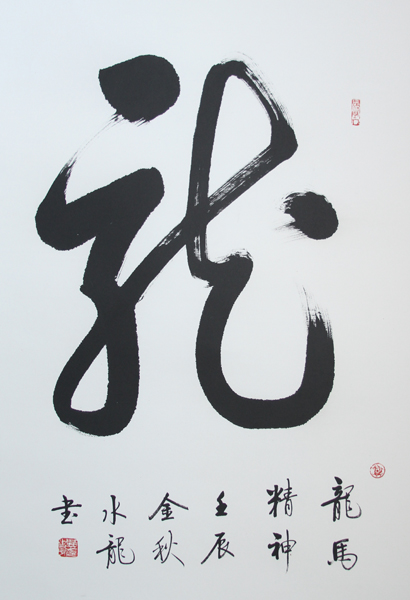 龙
龍馬
精神
壬辰
金秋
水龍
书